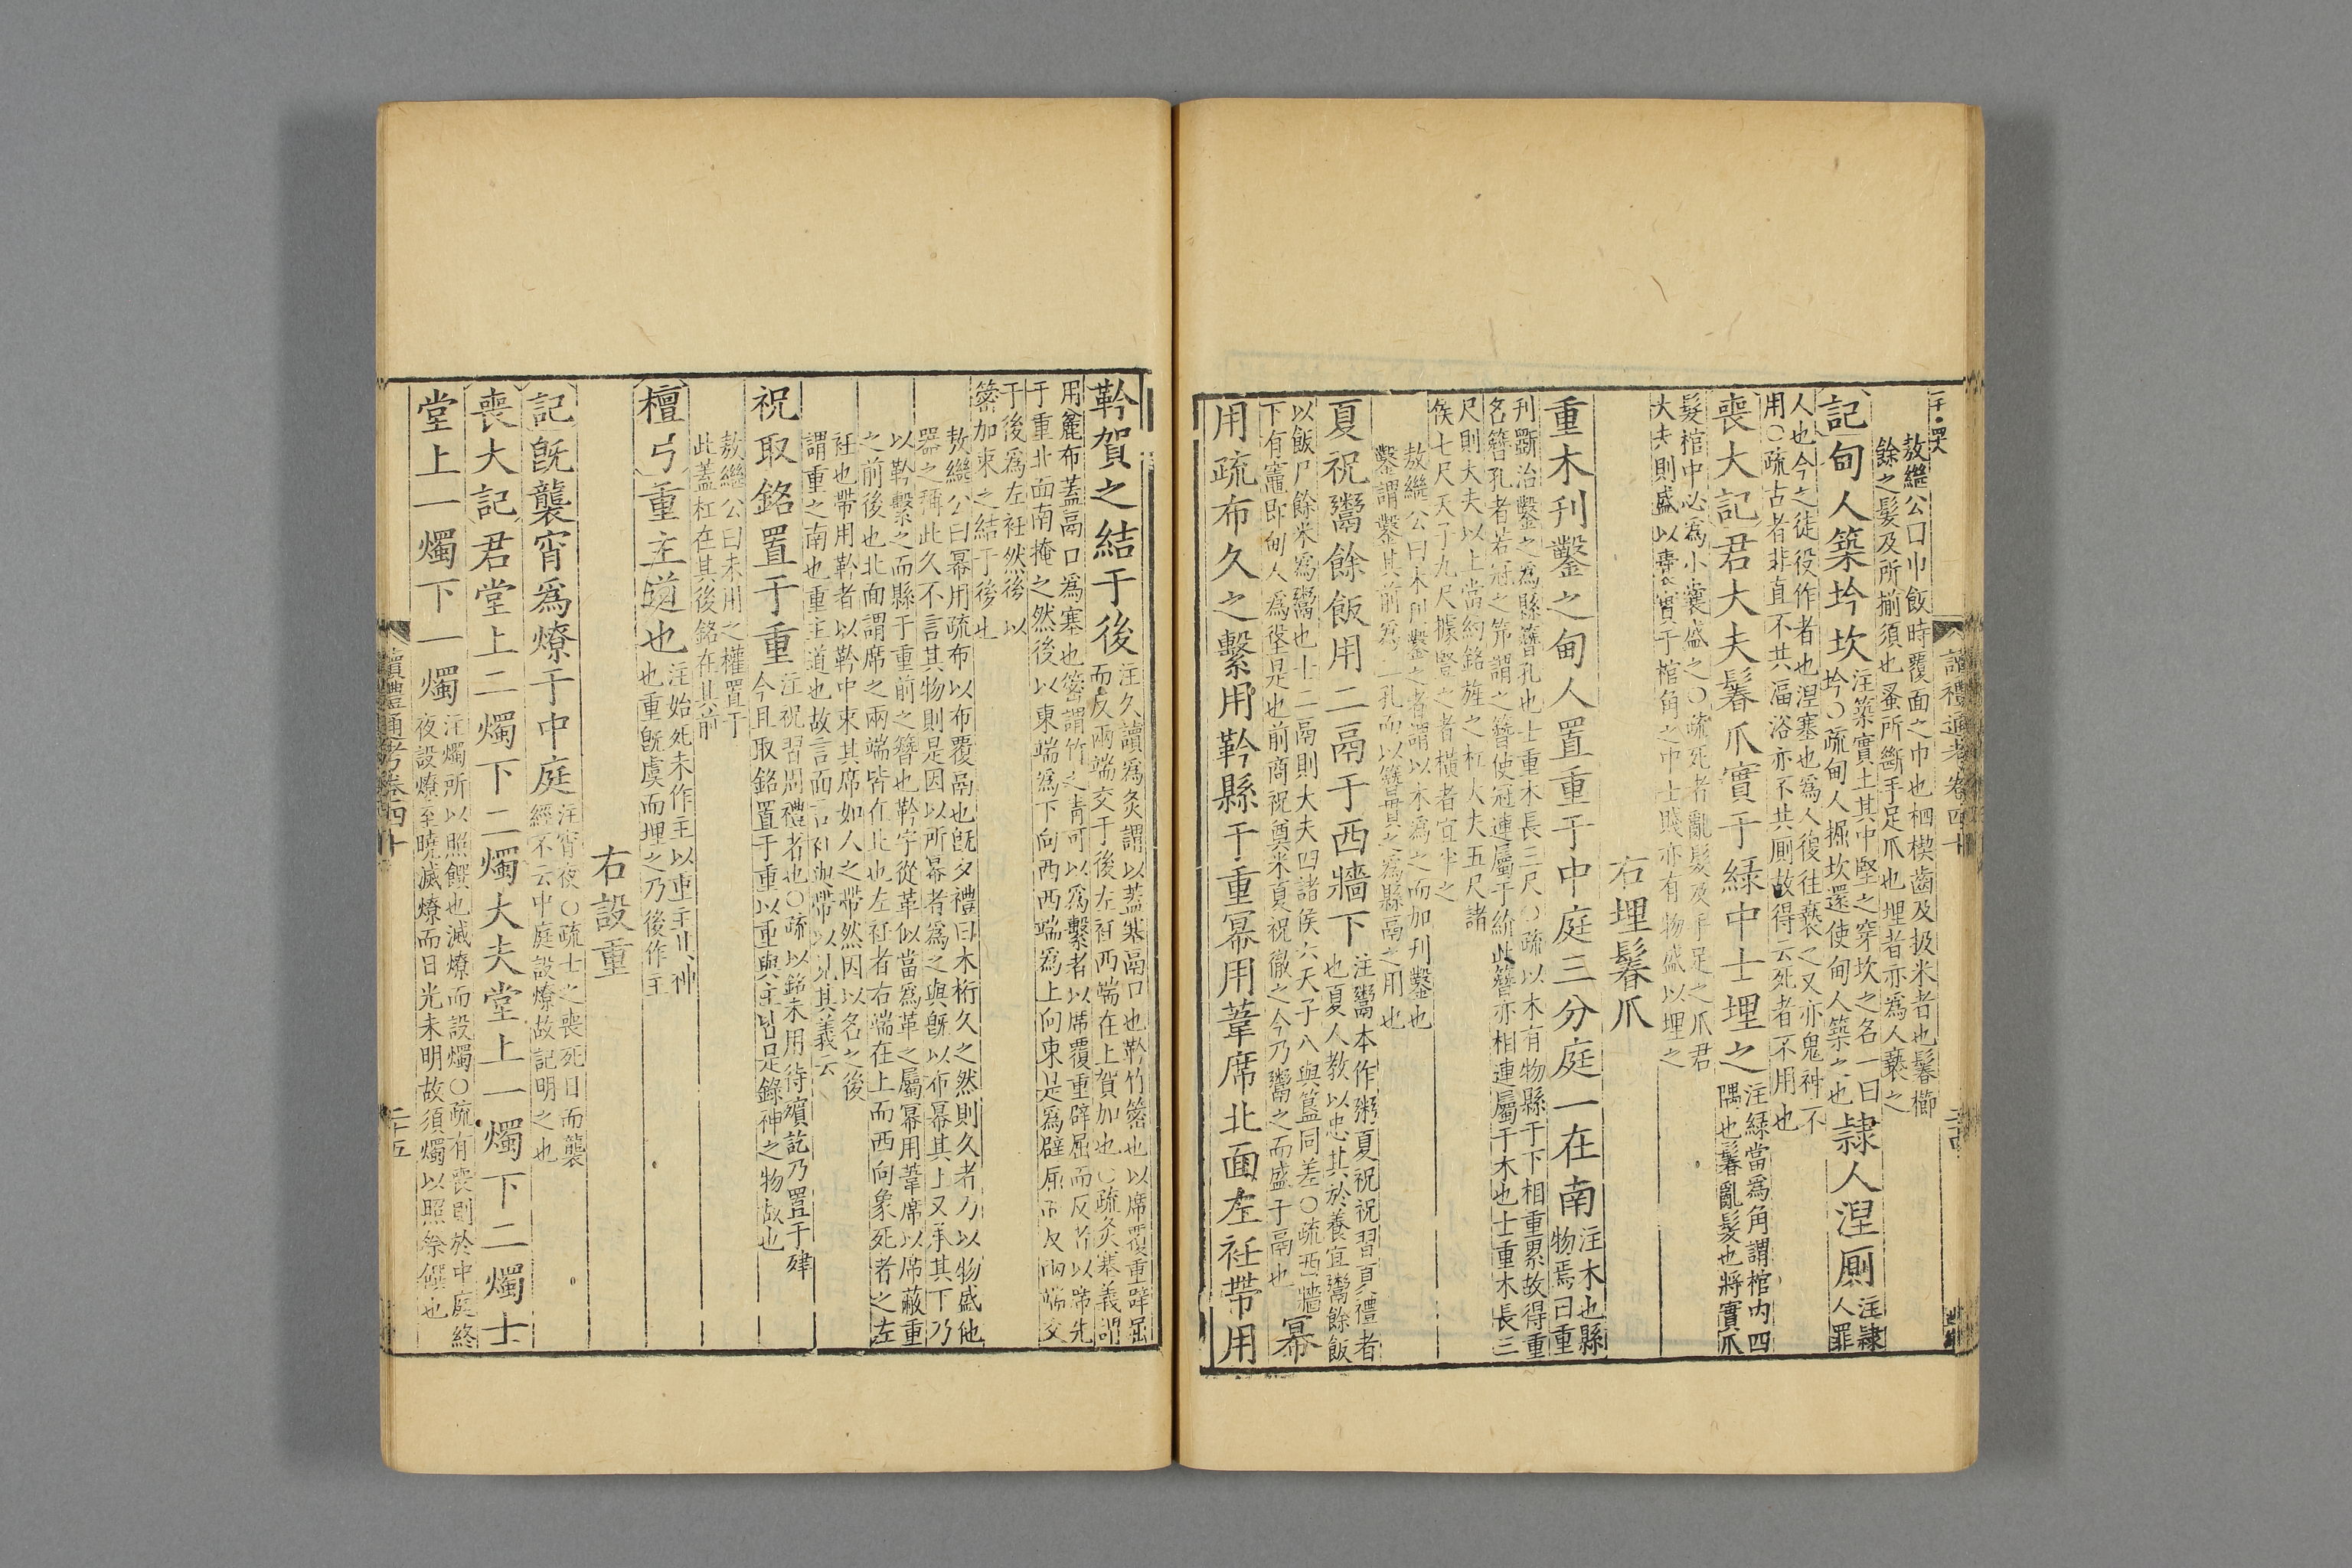 敖繼公曰巾飯時覆面之巾也栖楔齒及扱米者也鬠櫛
餘之髪及所揃須也蚤所斷手足爪也埋者亦爲人䙝之
記甸人築坅坎
注築實土其中堅之穿坎之名一曰
坅○疏甸人掘坎還使甸人築之也
隷人涅厠
注隷
人罪
人也今之徒役作者也涅塞也爲人復往䙝之又亦鬼神不
用○疏古者非直不共湢浴亦不共厠故得云死者不用也
喪大記君大夫鬊爪實于緑中士埋之
注緑當爲角謂棺内四
隅也鬊亂髪也將實爪
髪棺中必爲小囊盛之○疏死者亂髪及手足之爪君
大夫則盛以囊實于棺角之中士賤亦有物盛以埋之
右埋鬊爪
重木刋鑿之甸人置重于中庭三分庭一在南
注木也縣
物焉曰重
刋斵治鑿之爲縣簪孔也士重木長三尺○疏以木有物縣于下相重累故得重
名簪孔者若冠之笄謂之簪使冠連屬于紒此簪亦相連屬于木也士重木長三
尺則大夫以上當約銘旌之杠大夫五尺諸
侯七尺天子九尺據竪之者横者宜半之
敖繼公曰木刋鑿之者謂以木爲之而加刋鑿也
鑿謂鑿其前爲二孔而以簪貫之爲縣鬲之用也
夏祝鬻餘飯用二鬲于西牆下
注鬻本作粥夏祝祝習夏禮者
也夏人教以忠其於養宜鬻餘飯
以飯尸餘米爲鬻也士二鬲則大夫四諸侯六天子八與簋同差○疏西牆
下有竈即甸人爲垼是也前商祝奠米夏祝徹之今乃鬻之而盛于鬲也
冪
用疏布久之繫用靲縣于重冪用葦席北面左衽帶用
靲賀之結于後
注久讀爲灸謂以蓋塞鬲口也靲竹䈼也以席覆重辟屈
而反兩端交于後左衽西端在上賀加也○疏灸塞義謂
用麄布蓋鬲口爲塞也䈼謂竹之青可以爲繫者以席覆重辟屈而反者以席先
于重北面南掩之然後以東端爲下向西西端爲上向東是爲辟屈而反兩端交
于後爲左衽然後以
䈼加束之結于後也
敖繼公曰冪用疏布以布覆鬲也旣夕禮曰木桁久之然則久者乃以物盛他
器之稱此久不言其物則是因以所冪者爲之與旣以布冪其上又承其下乃
以靲繫之而縣于重前之簪也靲字從革似當爲革之屬冪用葦席以席蔽重
之前後也北面謂席之兩端皆在北也左衽者右端在上而西向象死者之左
衽也帶用靲者以靲中束其席如人之帶然因以名之後
謂重之南也重主道也故言面言衽與帶以見其義云
祝取銘置于重
注祝習周禮者也○疏以銘未用待殯訖乃置于肂
今且取銘置于重以重與主皆是錄神之物故也
敖繼公曰未用之權置于
此蓋杠在其後銘在其前
檀弓重主道也
注始死未作主以重主其神
也重旣虞而埋之乃後作主
右設重
記旣襲宵爲燎于中庭
注宵夜○疏士之喪死日而襲
經不云中庭設燎故記明之也
喪大記君堂上二燭下二燭大夫堂上一燭下二燭士
堂上一燭下一燭
注燭所以照饌也滅燎而設燭○疏有喪則於中庭終
夜設燎至曉滅燎而日光未明故須燭以照祭饌也
讀禮通考卷四十
二十五